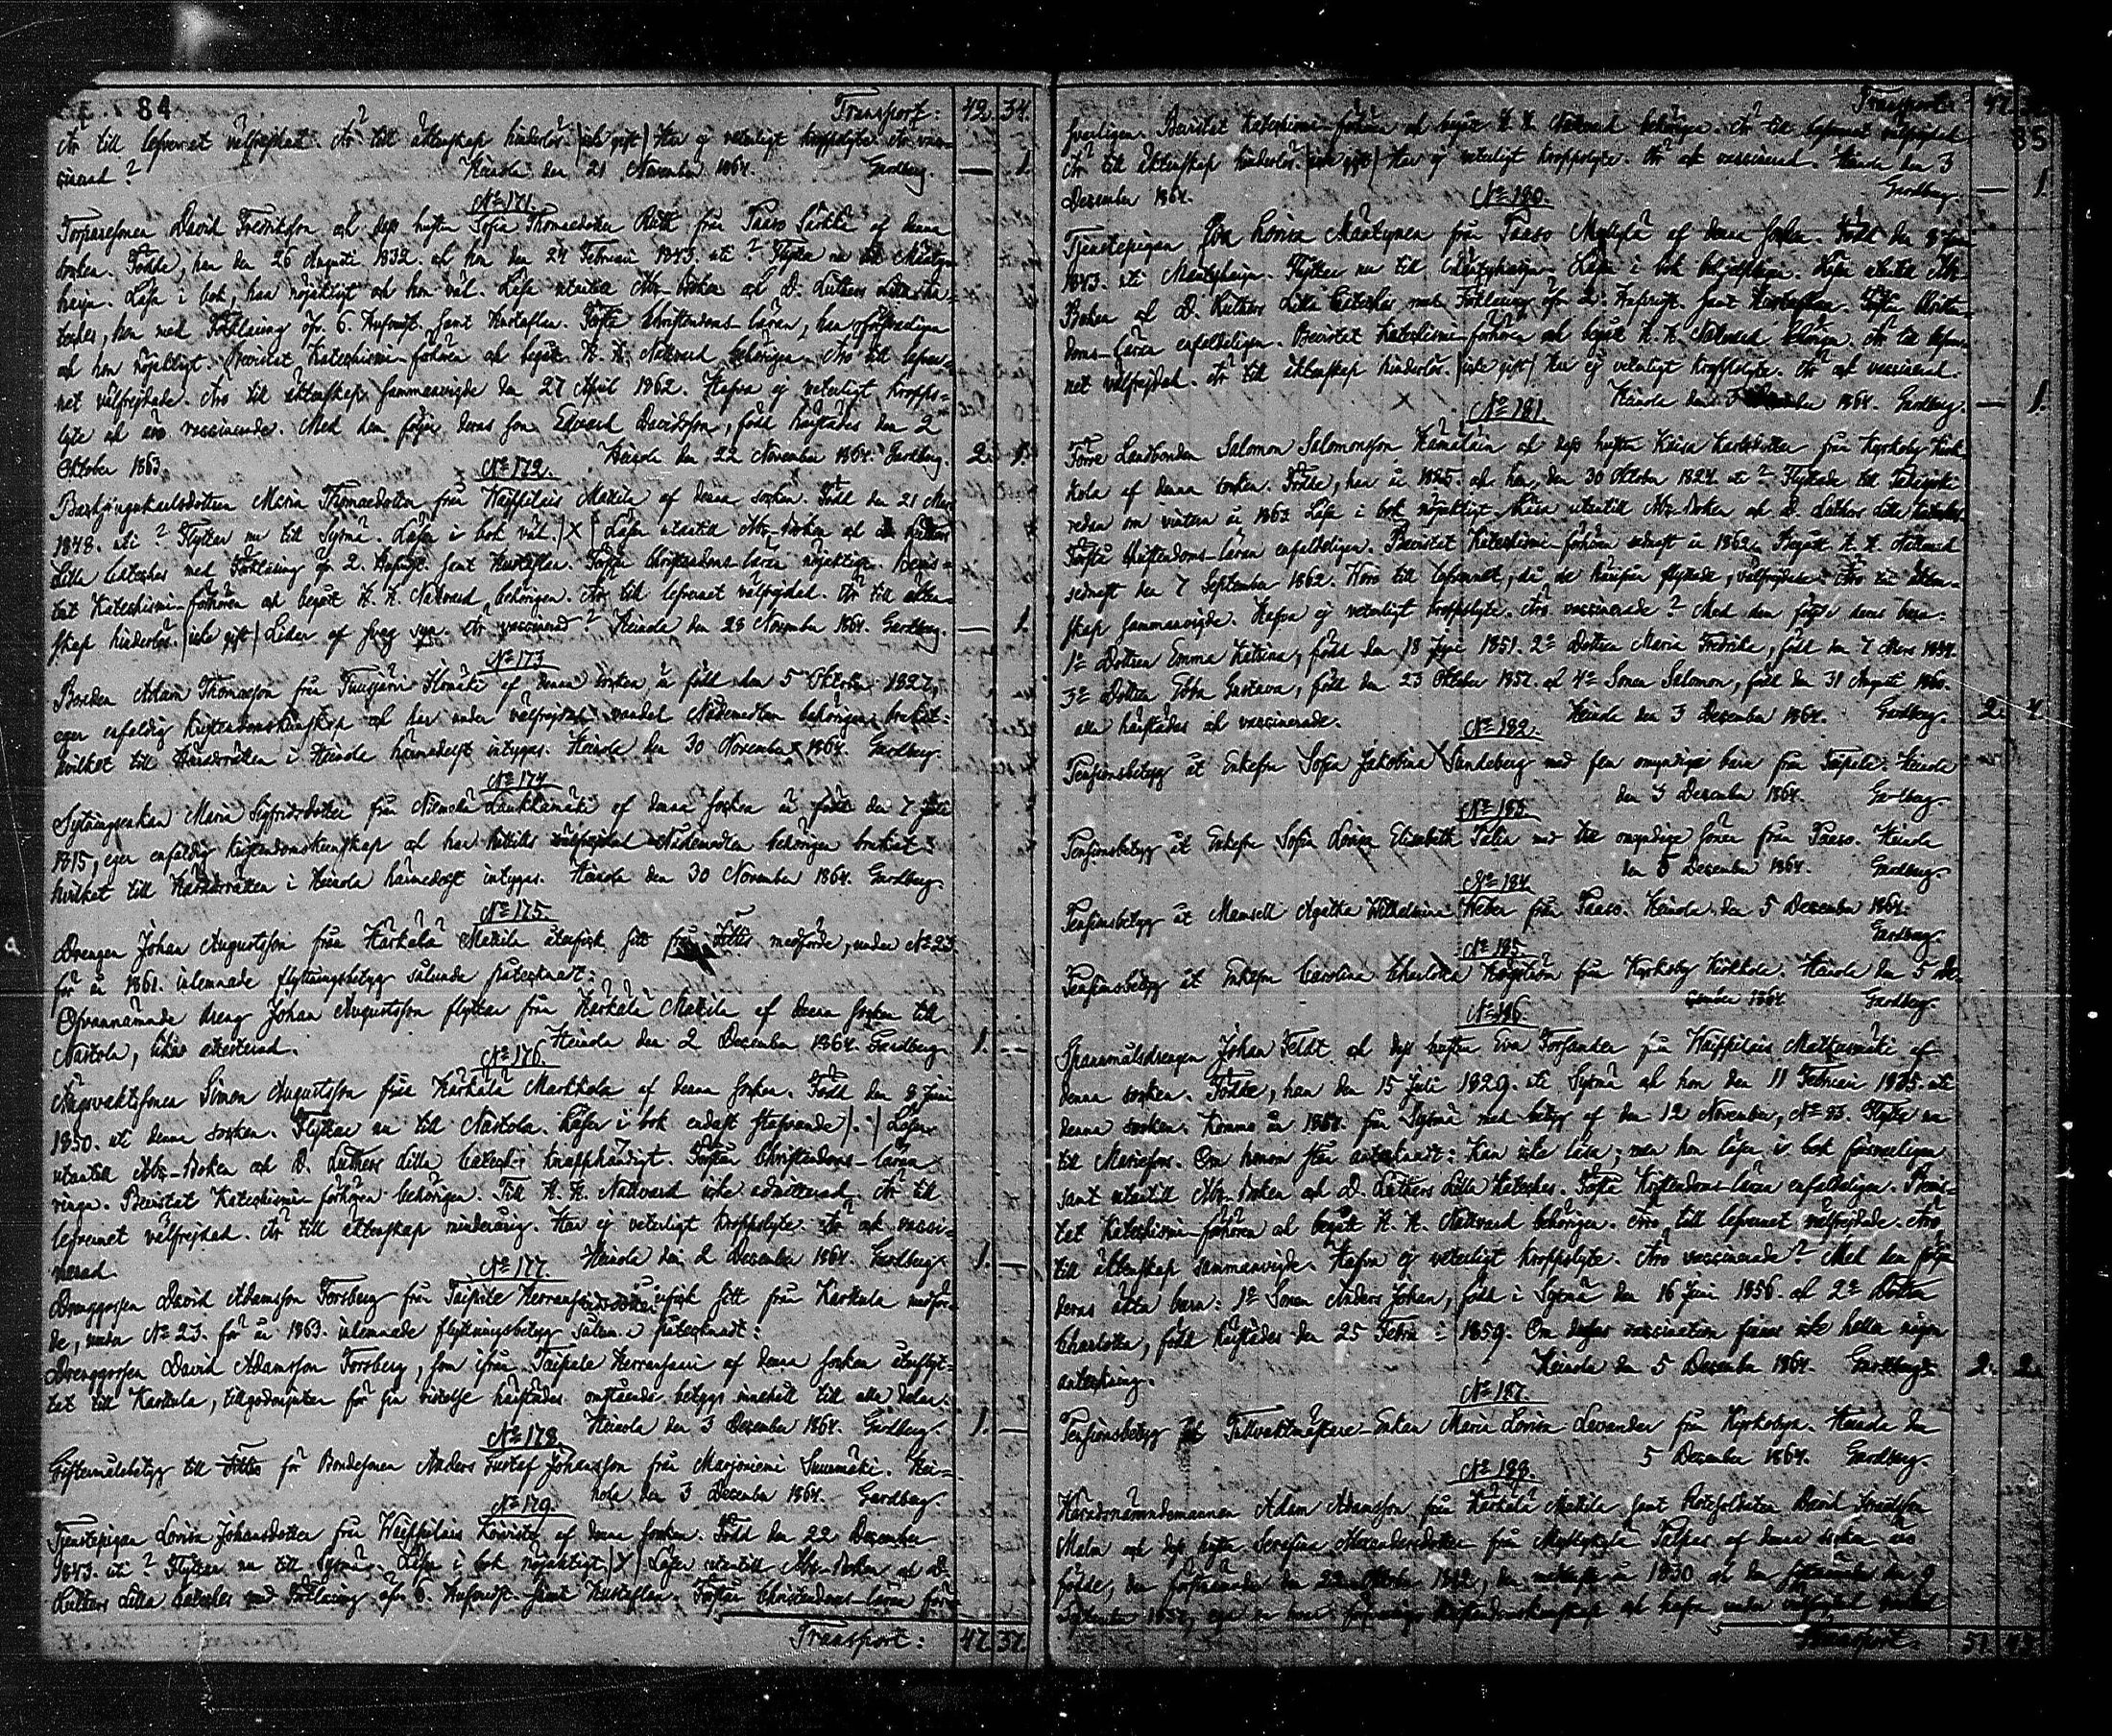 84 Transport: 42. 34.
Är till lefvernet välfrejdad. Är till äktenskap hinderlös. (icke gift) Har ej veterligt kroppslyte. Är vac-
cinerad? Heinola den 21 November 1864. Gardberg. — 1.
No 171.
Torparesonen David Fredriksson och dess hustru Sofia Thomaedotter från Paaso af denna
socken. Födde, han den 26 Augusti 1832. och hon den 24 Februari 1843. uti? Flytta nu till Mänty-
harju. Läsa i bok, han nöjaktigt och hon väl. Läsa utantill Abc-boken och D. Luthers Lilla Ka-
teches, hon med Förklaring öfv. 6. Hufvudst. samt Hustaflan. Förstå Christendoms-läran, han försvarligen
och hon nöjaktigt. Bevistat Katechismi-förhören och begått H. H. Nattvard behörigen. Äro till lefver-
net välfrejdade. Äro till äktenskap sammanvigde den 27 April 1862. Hafva ej veterligt kropps-
lyte och äro vaccinerade. Med dem följer deras son Edvard Davidsson, född härstädes den 2
Oktober 1863. Heinola den 22 November 1864. Gardberg. 2. 1.
No 172.
Maria Thomaedotter från Waippilais Makila af denna socken. Född den 21 Mars
1848. uti? Flyttar nu till Sysmä. Läser i bok väl. (X) Läser utantill Abc-boken och D. Luthers
Lilla Kateches med Förklaring öfv. 2. Hufvudst. samt Hustaflan. Förstår Christendoms-läran nöjaktigt. Bevis-
tat Katechismi-förhören och begått H. H. Nattvard behörigen. Är till lefvernet välfrejdad. Är till äkten-
skap hinderlös. (icke gift) Lider af svag syn. Är vaccinerad? Heinola den 28 November 1864. Gardberg. — 1.
No 173
Bonden Adam Thomasson från Tuusjärvi af denna socken är född den 5 Oktober 1827,
eger enfaldig kristendomskunskap och har under välfrejdad vandel Nådemedlen behörigen brukat:
hvilket till Häradsrätten i Heinola härmedelst intygas. Heinola den 30 November 1864. Gardberg.
No 174
Sytningsenkan Maria Sigfridsdotter från Niemelä af denna socken är född den 7 Juli
1815, eger enfaldig kristendomskunskap och har hittills välfrejdad Nådemedlen behörigen brukat:
hvilket till Häradsrätten i Heinola härmedelst intygas. Heinola den 30 November 1864. Gardberg
No 175.
Drengen Johan Augustsson från Härkälä Makila återfick sitt från Iittis medförde, under No 23
för år 1861. inlemnade flyttningsbetyg sålunda påtecknadt:
Ofvannämnde dreng Johan Augustsson flyttar från Härkälä Makila af denna socken till
Nastola, attesterad. Heinola den 2 December 1864. Gardberg 1. —
No 176.
Simon Augustsson från Härkälä Markkola af denna socken. Född den 8 Juni
1850. uti denna socken. Flyttar nu till Nastola. Läser i bok endast stafvande (.) Läser
utantill Abc-boken och D. Luthers Lilla Kateches knapphändigt. Förstår Christendoms-läran
ringa. Bevistat Katechismi-förhören behörigen. Till H. H. Nattvard icke admitterad. Är till
lefvernet välfrejdad. Är till äktenskap minderårig. Har ej veterligt kroppslyte. Är och vacci-
nerad. Heinola den 2 December 1864. Gardberg 1. —
No 177.
Drenggossen David Adamsson Forsberg från Taipale Herransaari återfick sitt från Karttula medför-
de, under No 23. för år 1863. inlemnade flyttningsbetyg sålunda påtecknadt:
Drenggossen David Adamsson Forsberg, som ifrån Taipale Herransaari af denna socken utflyt-
tat till Karttula, tillgodonjuter för sin vistelse härstädes omstående betygs innehåll till alla delar.
Heinola den 3 December 1864. Gardberg. 1. —
No 178
Giftermålsbetyg till Iittis för Bondesonen Anders Gustaf Johansson från Marjoniemi Suurmäki. Hei-
nola den 3 December 1864. Gardberg.
No 179.
Tjenstepigan Lovisa Johansdotter från Waippilais Koivisto af denna socken. Född den 22 December
1843. uti? Flyttar nu till Sysmä. Läser i bok nöjaktigt (X) Läser utantill Abc-boken och D.
Luthers Lilla Kateches med Förklaring öfv. 6. Hufvudst. samt Hustaflan. Förstår Christendoms-läran för-
Transport: 47. 37.
Transport: 47.
85
svarligen. Bevistat Katechismi-förhören och begått H. H. Nattvard behörigen. Är till lefvernet välfrejdad.
Är till äktenskap hinderlös. (icke gift) Har ej veterligt kroppslyte. Är och vaccinerad. Heinola den 3
December 1864. Gardberg — 1.
No 180.
Tjenstepigan Eva Lovisa Mäntynen från Paaso Myllylä af denna socken. Född den 8 Juni
1843. uti Mäntyharju. Flyttar nu till Mäntyharju. Läser i bok behjelpligen. Läser utantill Abc-
Boken och D. Luthers Lilla Kateches med Förklaring öfv. 2. Hufvudst. samt Hustaflan. Förstår Christen-
doms-läran enfaldeligen. Bevistat Katechismi-förhören och begått H. H. Nattvard behörigen. Är till lefver-
net välfrejdad. Är till äktenskap hinderlös. (icke gift) Har ej veterligt kroppslyte. Är och vaccinerad.
Heinola den 3 December 1864. Gardberg. — 1.
No 181.
Förre Landbonden Salomon Salomonsson Hämäläin och dess hustru Kaisa Karlsdotter från Kyrkoby Kirk-
kola af denna socken. Födde, han år 1825. och hon den 30 Oktober 1824. uti? Flyttade till
redan om vintern år 1863. Läsa i bok nöjaktigt. Läsa utantill Abc-boken och D. Luthers Lilla Kateches.
Förstå Christendoms-läran enfaldeligen. Bevistat Katechismi-förhören sednast år 1862. Begått H. H. Nattvard
sednast den 7 September 1862. Woro till lefvernet, då de härifrån flyttade, välfrejdade. Äro till äkten-
skap sammanvigde. Hafva ej veterligt kroppslyte. Äro vaccinerade? Med dem följde deras barn:
1o Dottren Emma Katrina, född den 18 Juni 1851. 2o Dottren Maria Fredrika, född den 7 Mars 1854.
3o Dottren Ebba Gustava, född den 23 Oktober 1857. och 4o Sonen Salomon, född den 31 Augusti 1860.
alla härstädes och vaccinerade. Heinola den 3 December 1864. Gardberg. 2. 4.
No 182.
Pensionsbetyg åt Enkefru Sofia Jakobina Sundeberg med fem omyndiga barn från Taipale. Heinola
den 3 December 1864. Gardberg
No 183.
Pensionsbetyg åt Enkefru Sofia Lovisa Elisabeth med tre omyndige söner från Paaso. Heinola
den 5 December 1864. Gardberg
No 184.
Pensionsbetyg åt Mamsell Agatha Wilhelmina Weber från Paaso. Heinola den 5 December 1864.
Gardberg.
No 185.
Pensionsbetyg åt Enkefru Carolina Charlotta från Kyrkoby Kirkkola. Heinola den 5 De-
cember 1864. Gardberg
No 186.
Spannmålsdrengen Johan Feldt och dess hustru Eva Forsander från Waippilais af
denna socken. Födde, han den 15 Juli 1829. uti Sysmä och hon den 11 Februari 1835. uti
denna socken. Komma år 1864. från Sysmä med betyg af den 12 November, No 83. Flytta nu
till Mariefors. Om honom står antecknadt: Kan icke läsa; men hon läser i bok försvarligen
samt utantill Abc-boken och D. Luthers Lilla Kateches. Förstå Kristendoms-läran enfaldeligen. Bevis-
tat Katechismi-förhören och begått H. H. Nattvard behörigen. Äro till lefvernet välfrejdade. Äro
till äktenskap sammanvigde. Hafva ej veterligt kroppslyte. Äro vaccinerade? Med dem följa
deras äkta barn: 1o Sonen Anders Johan, född i Sysmä den 16 Juni 1856. och 2o Dottren
Charlotta, född härstädes den 25 Februari 1859. Om dessas vaccination finnes icke heller någon
anteckning. Heinola den 5 December 1864. Gardberg 2. 2.
No 187.
Pensionsbetyg åt Tullvaktmästare-Enkan Maria Lovisa Levander från Kyrkobyn. Heinola den
5 December 1864. Gardberg.
No 188.
Häradsnämndemannen Adam Adamsson från Härkälä Makila samt Rotesoldaten David
Malm och dess hustru Serafina Alexandersdotter från Myllykylä af denna socken äro
födde, den förstnämnde den 22 Oktober 1812, den år 1830 och den sistnämnda den 9
September 1837, ega en hvar försvarlig kristendomskunskap och hafva under välfrejdad vandel
Transport. 51.